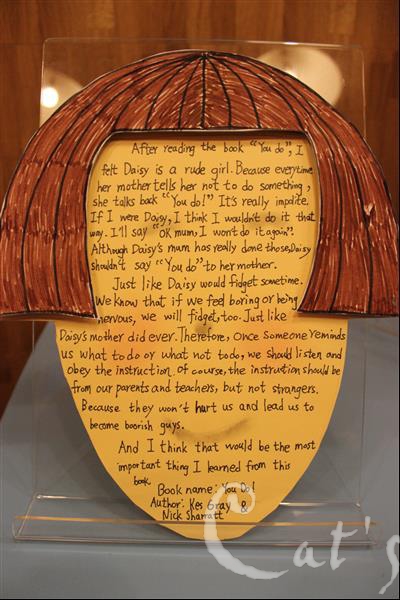 After reading the book "You do", I
felt Daisy is a rude girl. Because everytime
her mother tells her not to do something,
she talks back "You do!" It's really impolite.
If I were Daisy, I think I wouldn't do it that
way. I'll say "OK mum, I won't do it again".
Although Daisy's mum has really done those, Daisy
shouldn't say "You do" to her mother.
Just like Daisy would fidget sometime.
We know that if we feel boring or being
nervous, we will fidget, too. Just like
Daisy's mother did ever. Therefore, once someone reminds
us what to do or what not to do, we should listen and
obey the instruction. Of course, the instruction should be
from our parents and teachers, but not strangers.
Because they won't hurt us and lead us to
become boorish guys.
And I think that would be the most
important thing I learned from this
book.
Book name: You Do!
Author: Kes Gray &
Nick Sharratt
Cat's